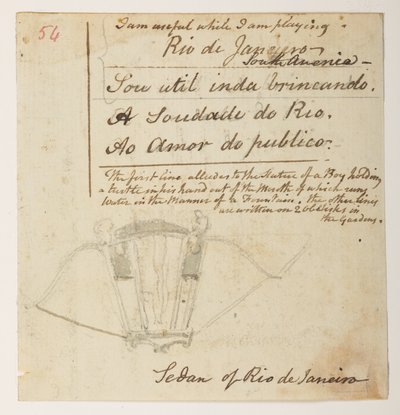 54
I am useful while I am playing.
Rio de Janeiro
South America
Sou util inda brincando.
A Soudade do Rio.
Ao Amor do publico.
The first line alludes to the Nature of a Boy holding
a turtle in his hand out of the Mouth of which runs
Water in the Manner of a Fountain. the other lines
are written on 2 Obelisks in
the Gardens.
Sedan of Rio de Janeiro